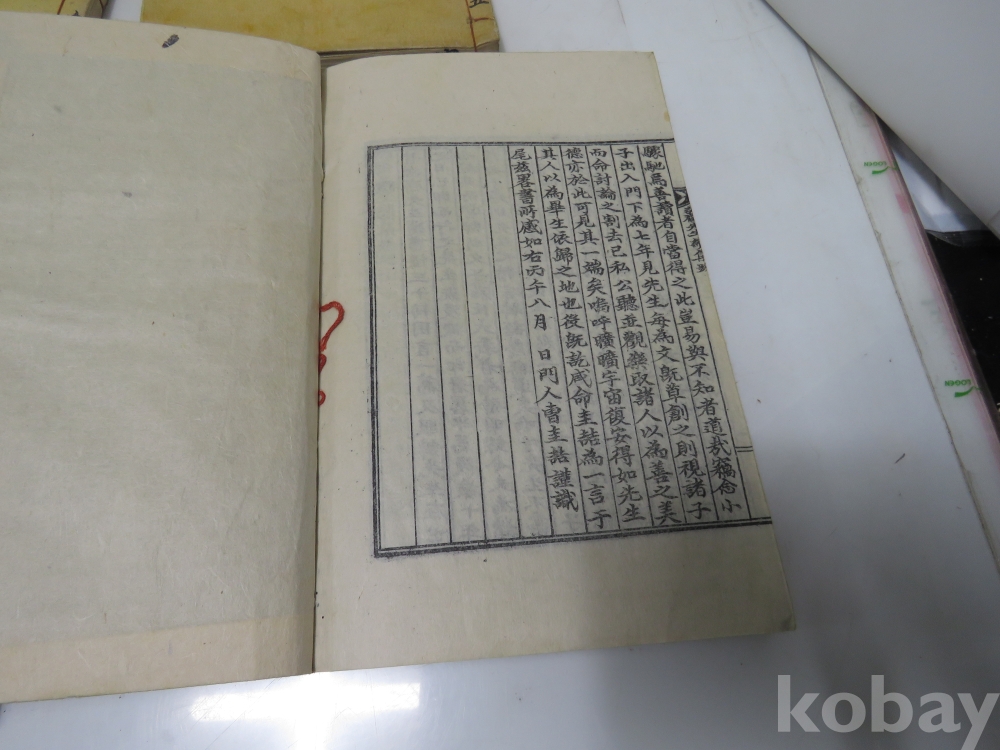 驟馳爲善讀者自當得之此豈易與不知者道哉竊念小
子出入門下為七年見先生每為文旣草創之則視諸子
而命討論之割去己私公聽並觀樂取諸人以為善之美
德亦於此可見其一端矣嗚呼曠曠宇宙復安得如先生
其人以為畢生依歸之地也役旣訖咸命圭喆為一言于
尾玆畧書所感如右丙午八月 日門人曺圭喆謹識
五
LOGEN
LOGEN
kobay